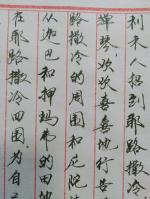 利未人招到耶路撒冷
弹琴、欢欢喜喜地行告
路撒冷的周围和尼陀
从迦巴和押玛弗的田地
在耶路撒冷四围,为自